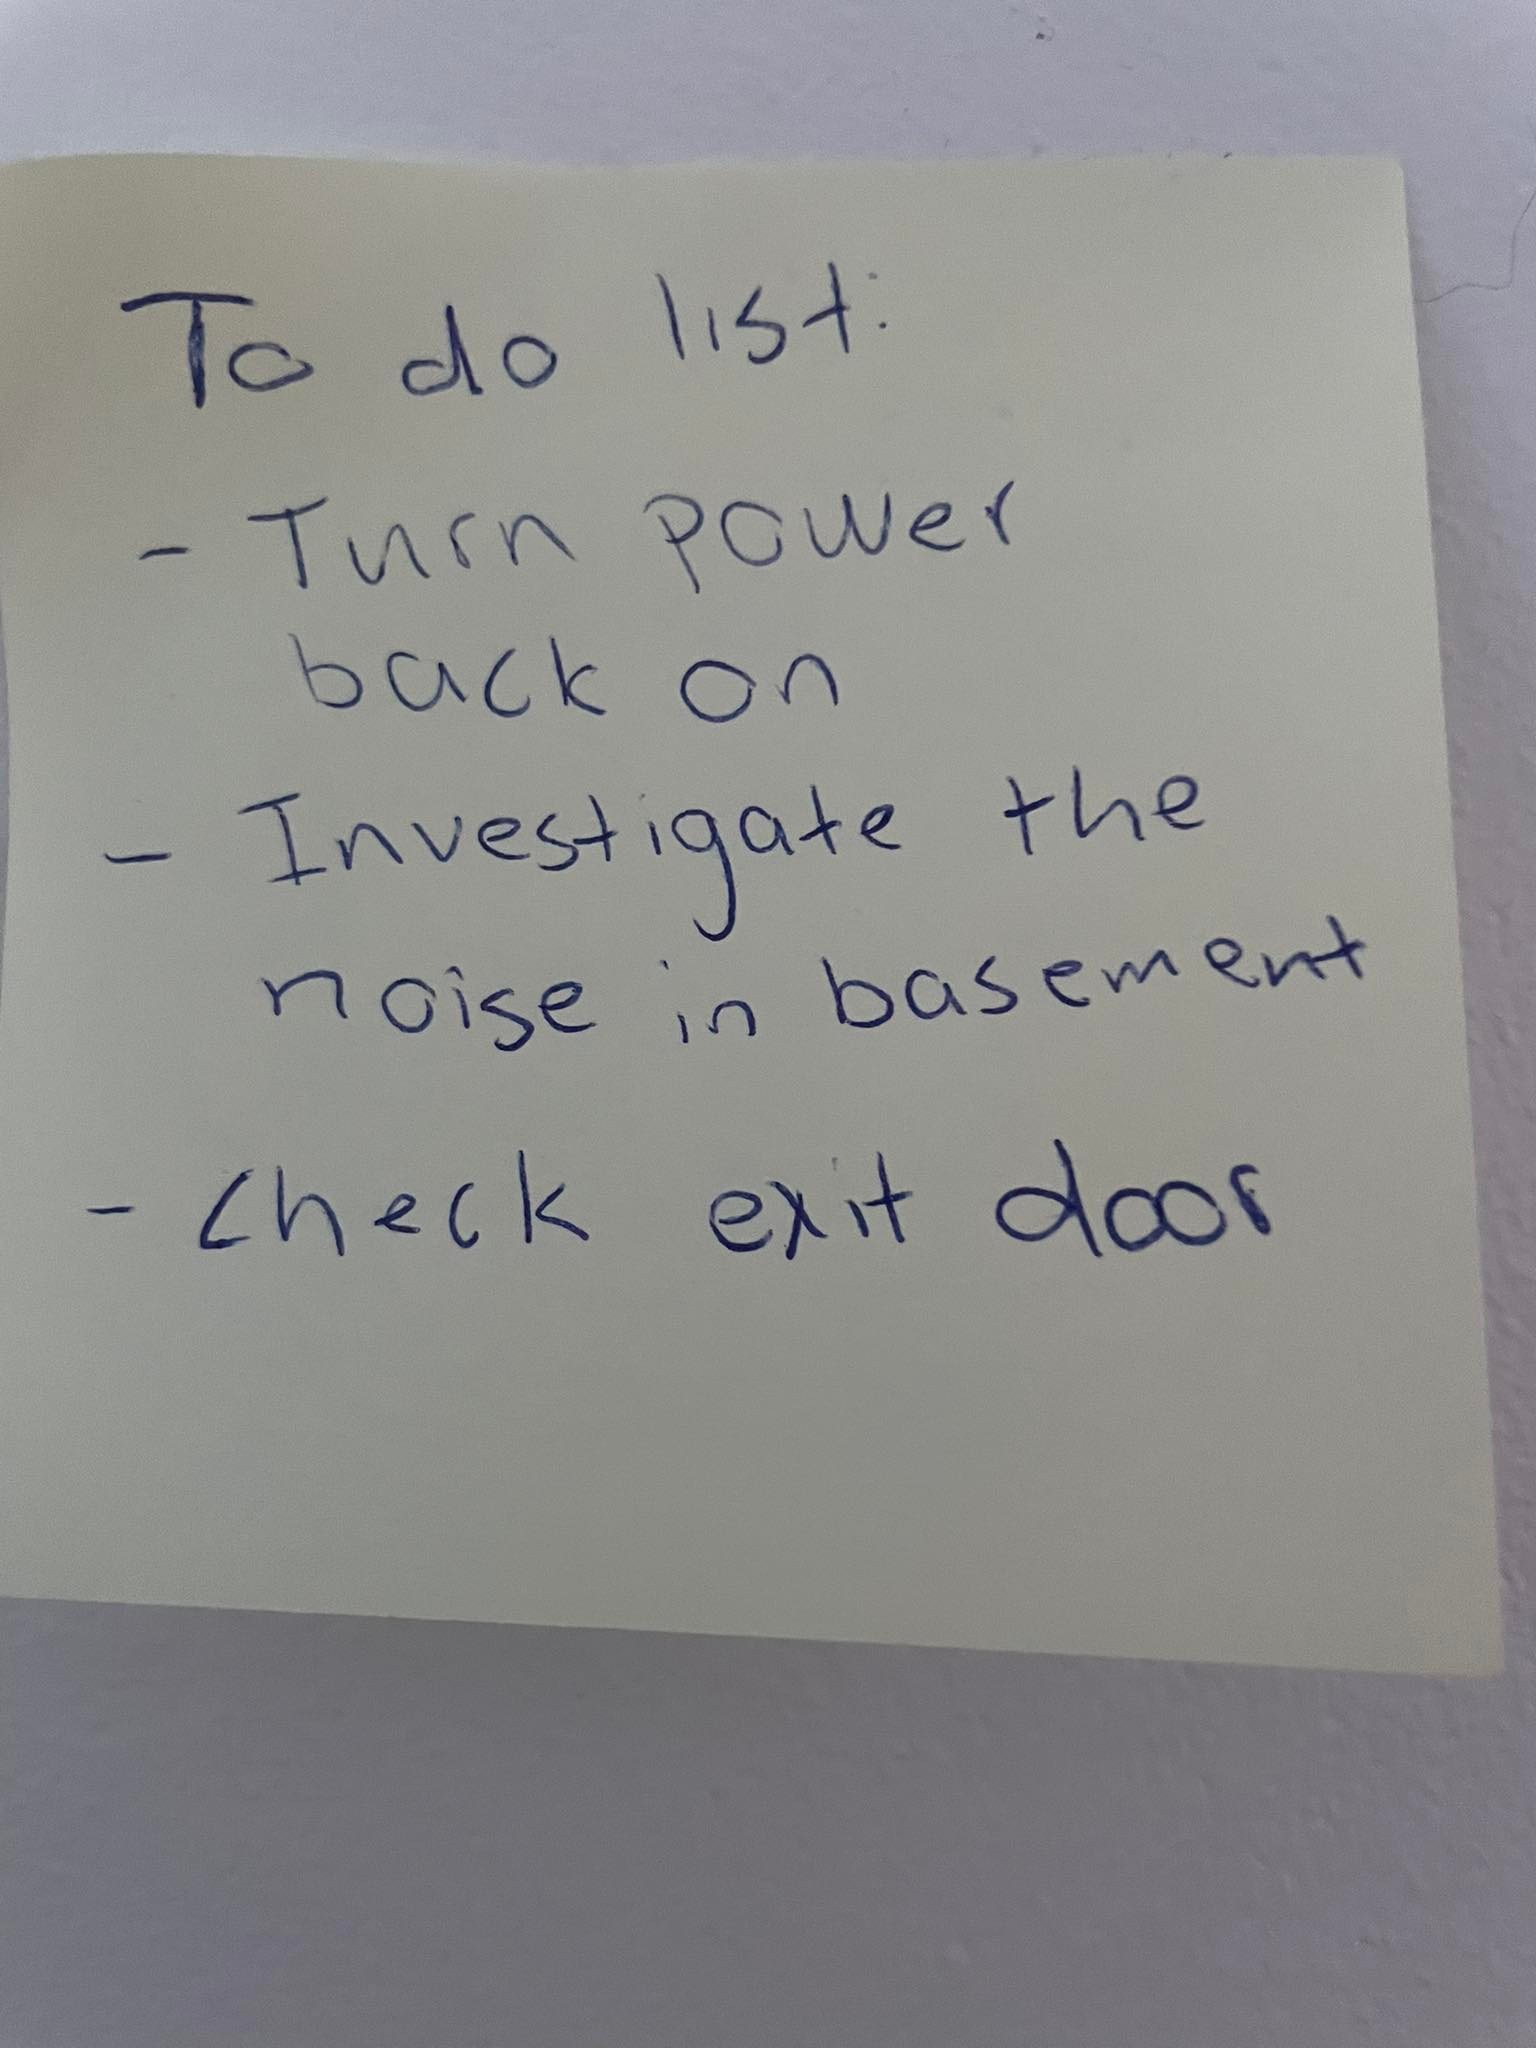 To do list:
- Turn power
back on
- Investigate the
noise in basement
- check exit door